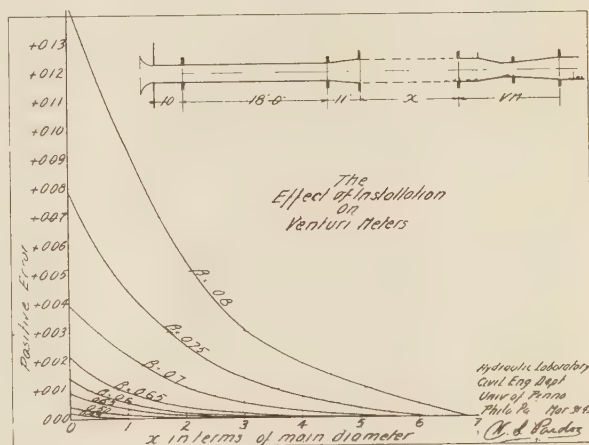 +0.13
+0.12
+0.11
+0.10
+0.09
+0.08
+0.07
+0.06
+0.05
+0.04
+0.03
+0.02
+0.01
0.00
Positive Error
10 18'-0" 11" x V.M.
The
Effect of Installation
on
Venturi Meters
β=0.8
β=0.75
β=0.7
β=0.65
0 1 2 3 4 5 6 7
x in terms of main diameter
Hydraulic Laboratory
Civil Eng Dept
Univ of Penna
Phila Pa Mar
W. S. Pardoe